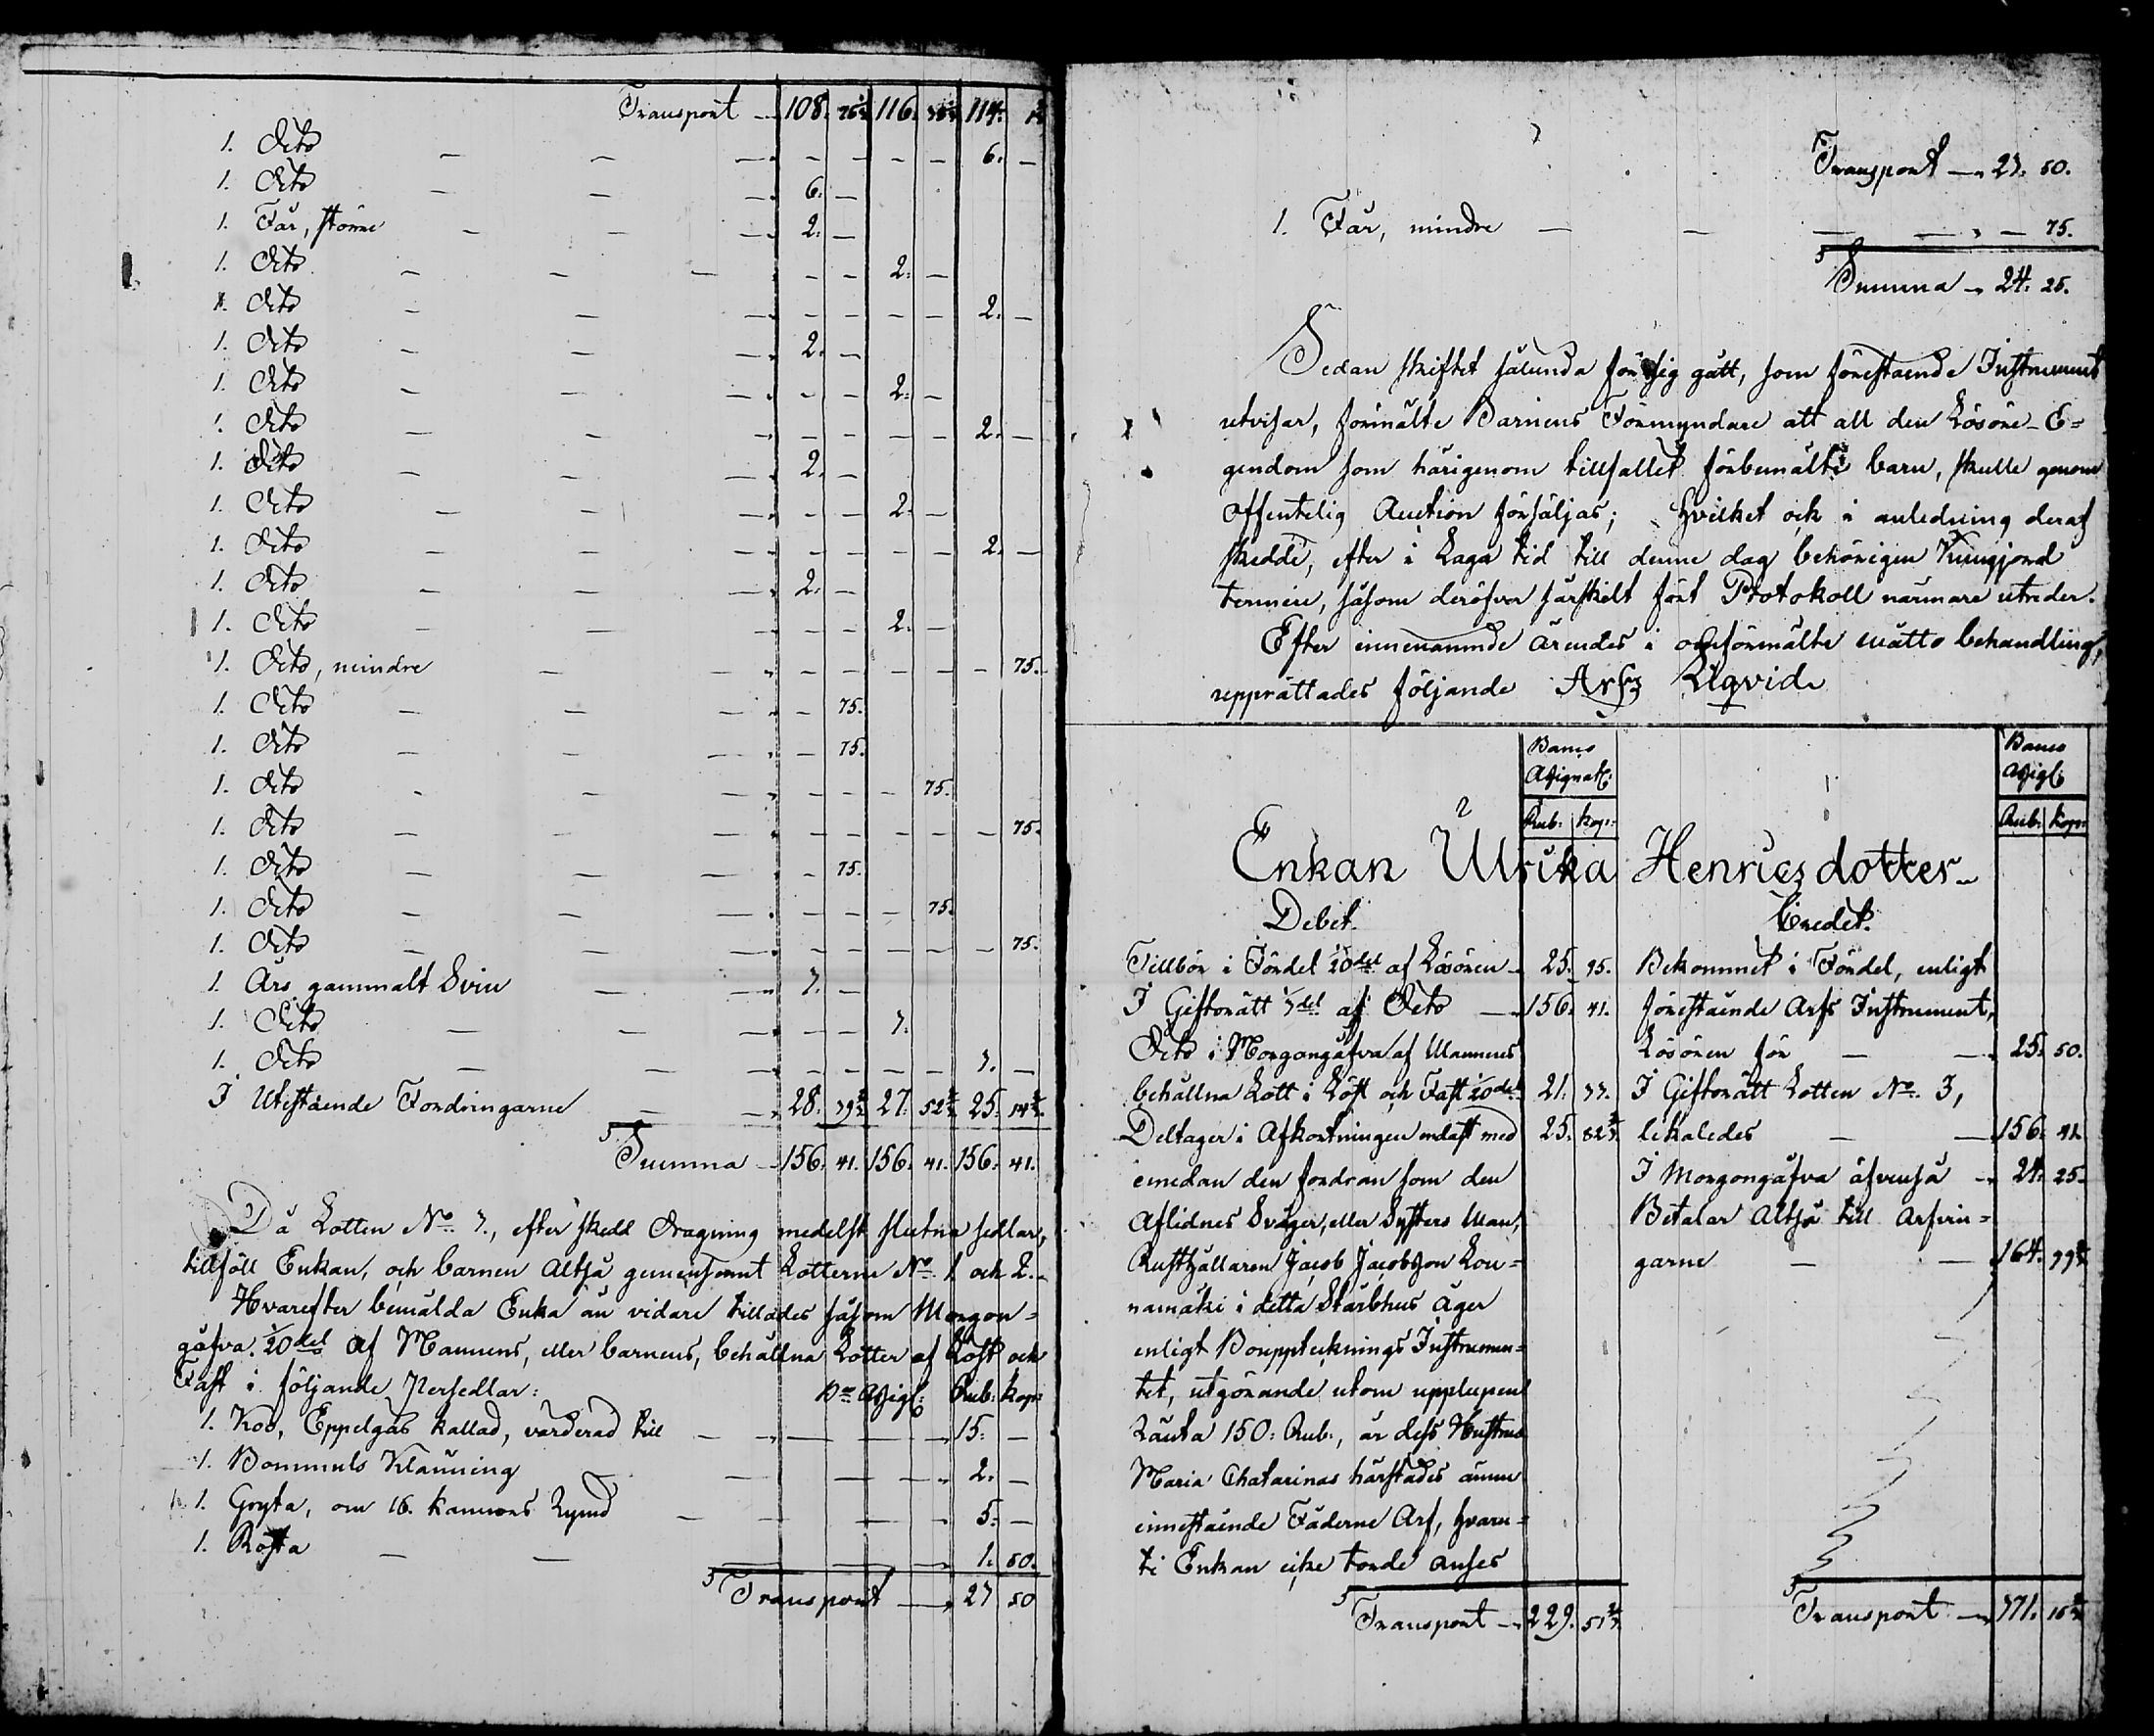 Transport 108. 116. 114.
1. Dito — — — — — — — 6. —
1. Dito — — — 6. —
1. Får, större — — — 2. —
1. Dito — — — — — 2. —
1. Dito — — — — — — — 2. —
1. Dito — — — 2. —
1. Dito — — — — — 2. —
1. Dito — — — — — — — 2. —
1. Dito — — — 2. —
1. Dito — — — — — 2. —
1. Dito — — — — — — — 2. —
1. Dito — — — 2. —
1. Dito — — — — — 2. —
1. Dito, mindre — — — — — — — 75.
1. Dito — — — — 75.
1. Dito — — — — 75.
1. Dito — — — — — — 75.
1. Dito — — — — — — — — 75.
1. Dito — — — — 75.
1. Dito — — — — — — 75.
1. Dito — — — — — — — — 75.
1. Års gammalt Svin — — 7. —
1. Dito — — — — — 7.
1. Dito — — — — — — — 7. —
I Utestående Fordringarne — — 28. 27. 25.
Summa 156. 41. 156. 41. 156. 41.
Då Lotten No. 3., efter skedd dragning medelst slutna sedlar,
tillföll Enkan, och barnen Altså gemensamt Lotterne No. 1 och 2. –
Hvarefter bemälda Enka än vidare tillades såsom Morgon=
gåfva 1/20del af Mannens, eller barnens, behållna Lotter af Löst och
Fast i följande Persedlar: Bco Assign: Rub: kop:
1. Koo, Eppelgås kallad, värderad till — — — 15. —
1. Bommuls Klänning — — — 2. —
1. Gryta, om 16. kannors Rymd — — — 5. —
1. Rosta — — — — 1. 50.
Transport — 23 50
Transport — 23. 50.
1. Får, mindre — — — — — 75.
Summa — 24. 25.
Sedan skiftet sålunda för sig gått, som förestående Instrument
utvisar, förmälte Barnens Förmyndare att all den Lösöre-E=
gendom som härigenom tillfallet förbemälte barn, skulle genom
offentelig Auction försäljas; hvilket ock i anledning deraf
skedde, efter i Laga tid till denne dag behörigen kungjord
termin, såsom deröfver särskilt fört Protokoll närmare utreder.
Efter innenämnde ärendes i ofvanförmälte måtto behandling,
upprättades följande Arfs Liqvid
Banco Assignat: Banco Assig:
Rub: kop: Rub: kop:
Enkan Ulrika Henricsdotter
Debet. Credet.
Tillbör i Fördel 1/20del af Lösören 25. 95.
I Giftorätt 1/3del af Dito — 156. 41.
Dito i Morgongåfva af Mannens
behållna Lott i Löst och Fast 1/20del 21. 33.
Deltager i Afkortningen endast med 25. 82
emedan den fordran som den
Aflidnes Svåger, eller Systers Man,
Rusthållaren Jacob Jacobsson Kou=
namäki i detta Stärbhus äger
enligt Bouppteknings Instrumen=
tet, utgörande utom upplupen
Ränta 150: Rub., är dess Hustrus
Maria Chatarinas härstädes ännu
innestående Fäderne Arf, hvaru=
ti Enkan icke torde anses
Transport 229. 51
Bekommet i Fördel, enligt
förestående Arfs Instrument,
Lösören för — — 25. 50.
I Giftorätt Lotten No. 3,
likaledes — — 156. 41.
I Morgongåfva äfvenså — 24. 25.
Betalar Altså till Arfvin=
garne — — 164. 99
Transport — 371. 15